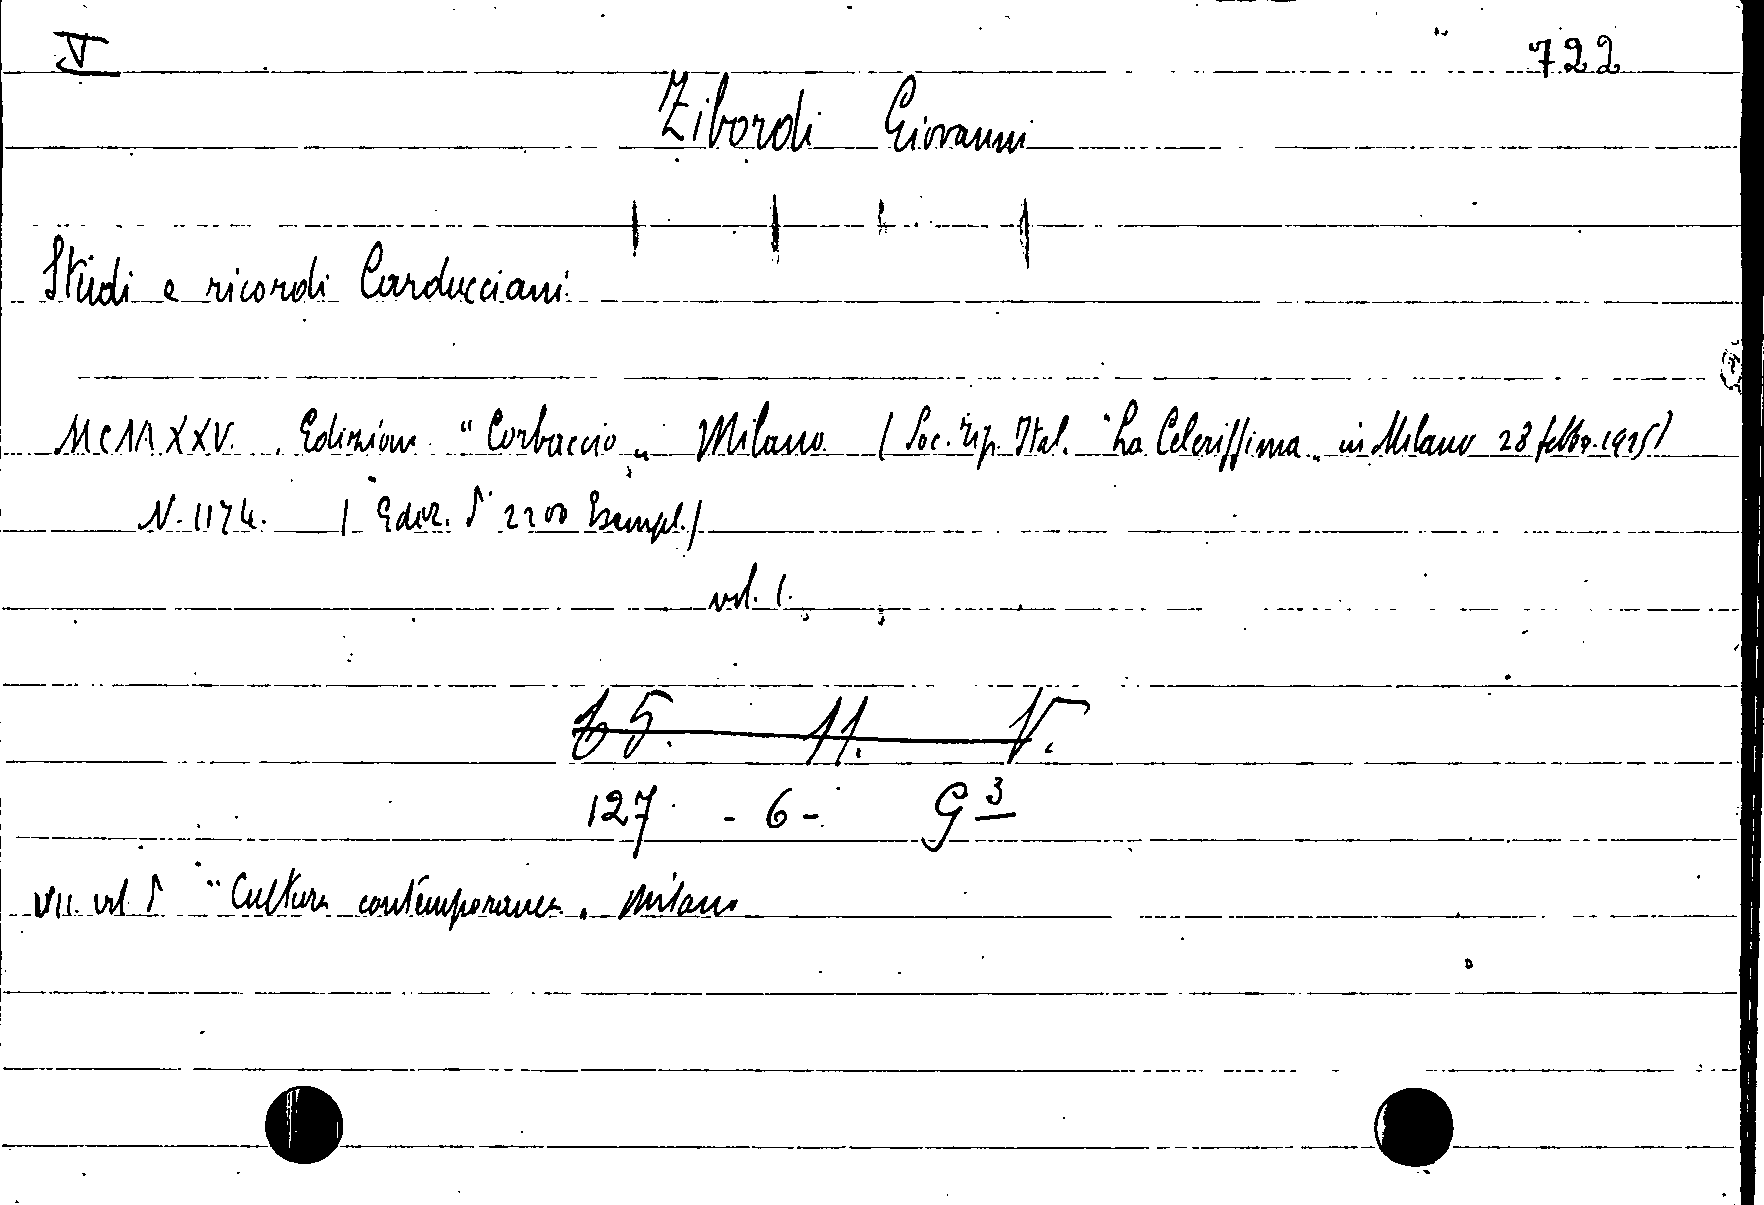 V 722
Zibordi Giovanni
Studi e ricordi Carducciani.
MCMXXV. Edizioni "Corbaccio„ Milano (Soc. Tip. Ital. "La Celerissima„ in Milano 28 febbr. 1925)
N. 1174. (Ediz. di 2200 Esempl.)
vol. 1.
65. 11. V.
127 - 6 - G 3
VII. vol. di "Cultura contemporanea„ Milano